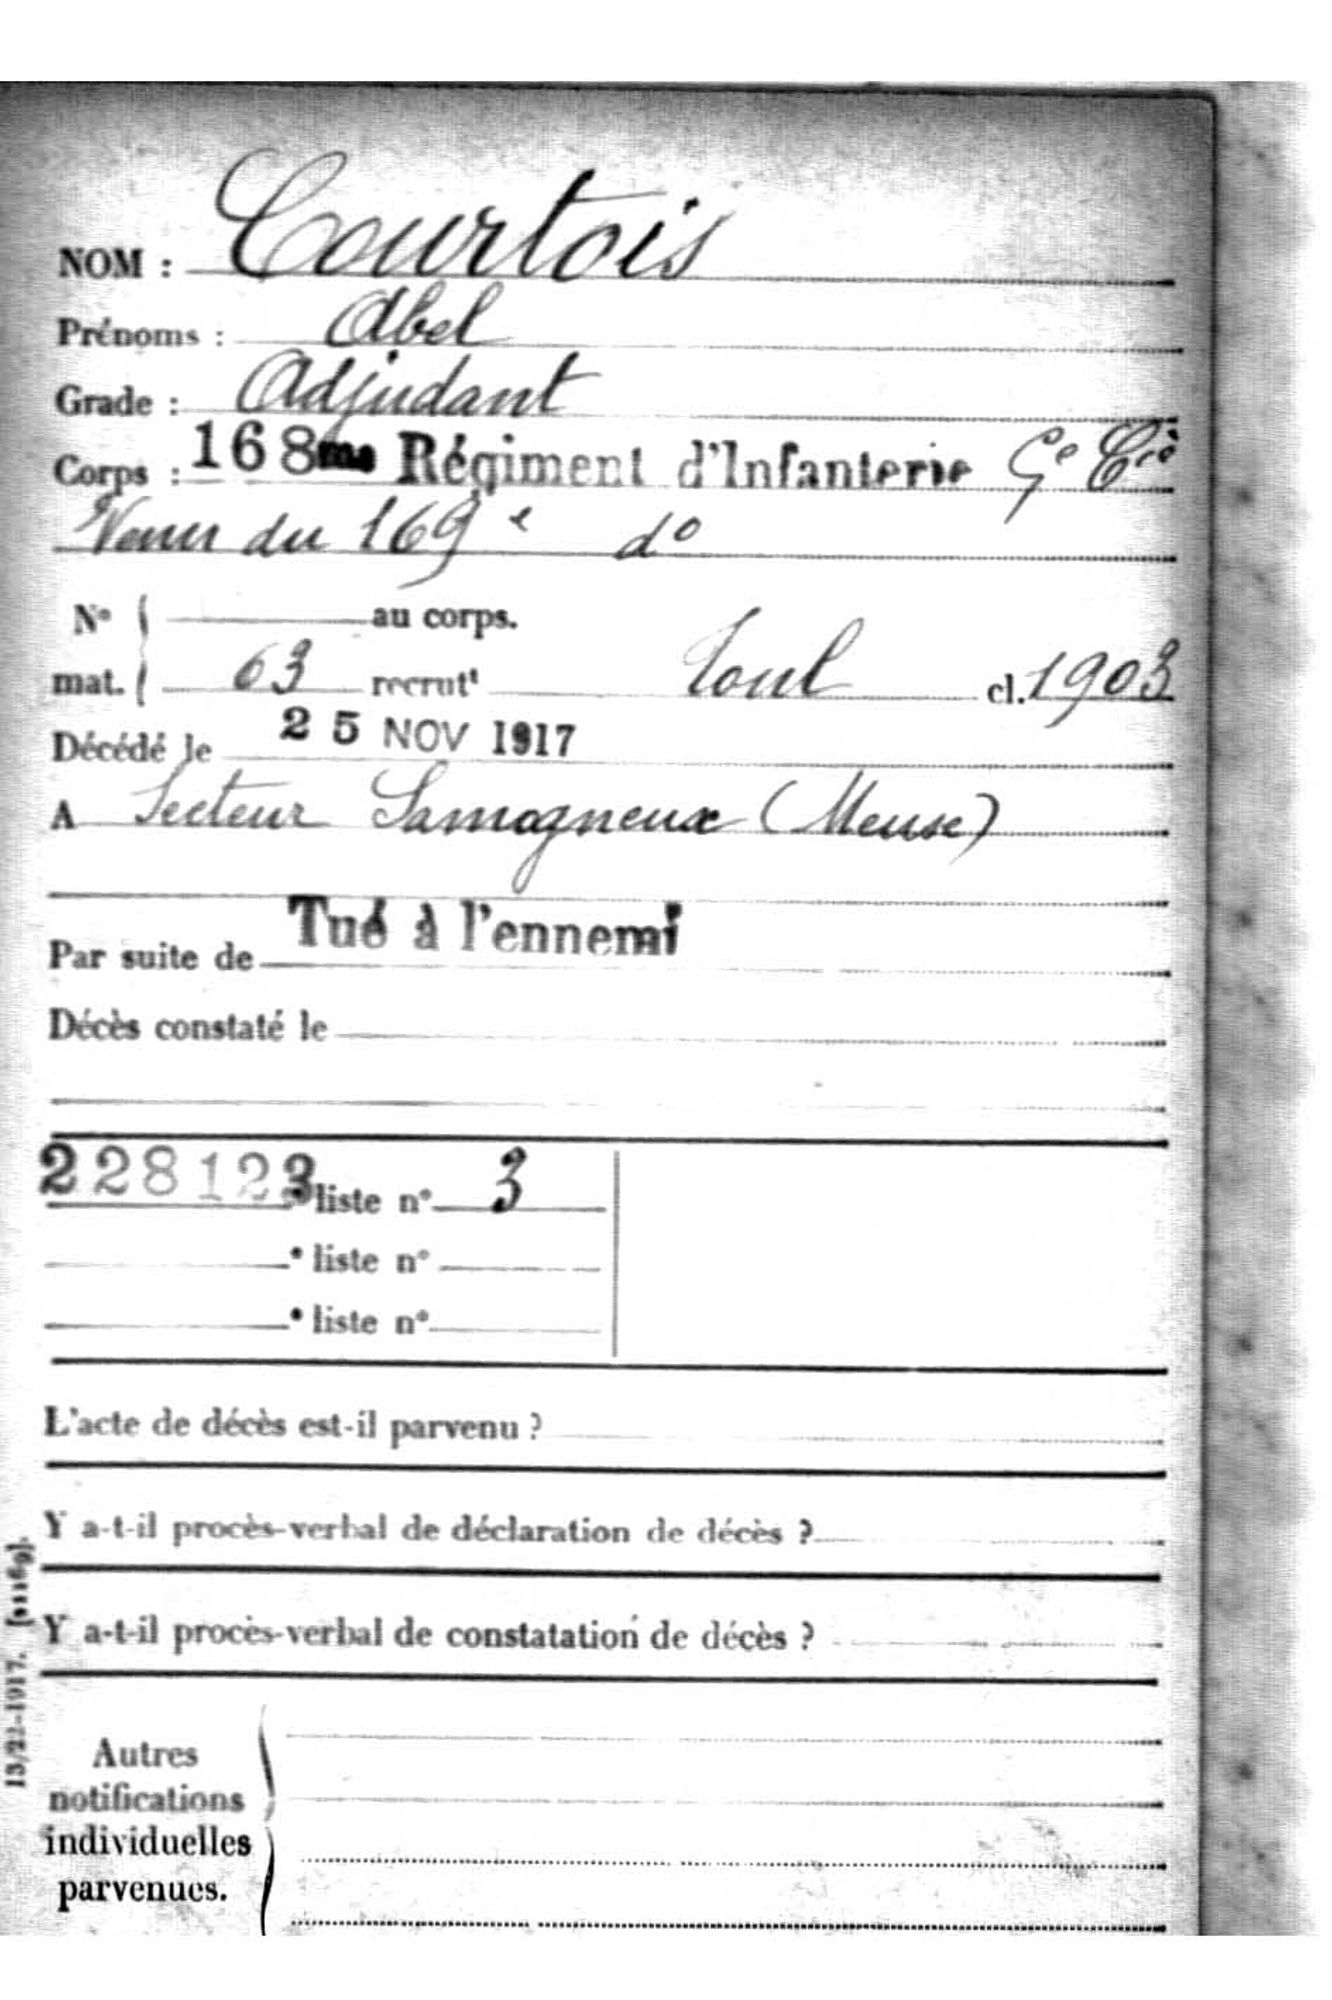 NOM : Courtois
Prénoms : Abel
Grade : Adjudant
Corps : 168me Régiment d'Infanterie 9e Cie
Venu du 169e do
No au corps.
mat. 63 recrutt Toul cl. 1903
Décédé le 25 NOV 1917
A Secteur Samogneux (Meuse)
Par suite de Tué à l'ennemi
Décès constaté le
228123 liste n° 3
liste n°
liste n°
L'acte de décès est-il parvenu ?
Y a-t-il procès-verbal de déclaration de décès ?
Y a-t-il procès-verbal de constatation de décès ?
Autres
notifications
individuelles
parvenues.
13/22-1917.